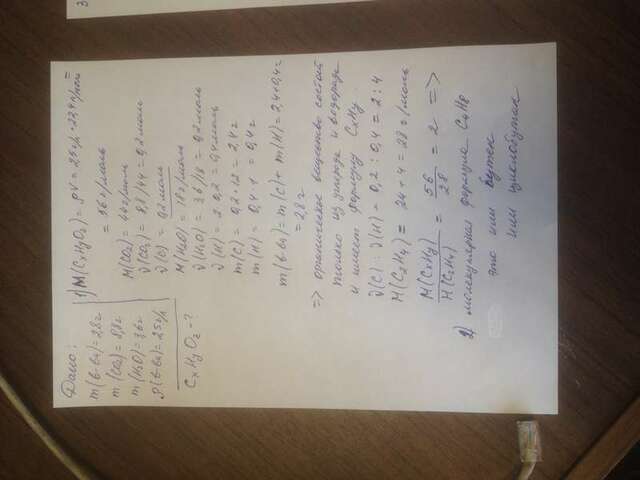 Дано:
m(в-ва)=2,8г
m(CO₂)=8,8г
m(H₂O)=3,6г
ρ(в-ва)=2,5г/л
CxHyOz-?
1) M(CxHyOz)=ρV=2,5г/л·22,4л/моль=
=56г/моль
M(CO₂)=44г/моль
ν(CO₂)=8,8/44=0,2моль
ν(C)=0,2моль
M(H₂O)=18г/моль
ν(H₂O)=3,6/18=0,2моль
ν(H)=2·0,2=0,4моль
m(C)=0,2·12=2,4г
m(H)=0,4·1=0,4г
m(в-ва)=m(C)+m(H)=2,4+0,4=
=2,8г
=> органическое вещество состоит
только из углерода и водорода
и имеет формулу CxHy.
ν(C):ν(H)=0,2:0,4=2:4
M(C₂H₄)=24+4=28г/моль
M(CxHy)/M(C₂H₄)=56/28=2 =>
2) молекулярная формула C₄H₈
это или бутен
или циклобутан
3